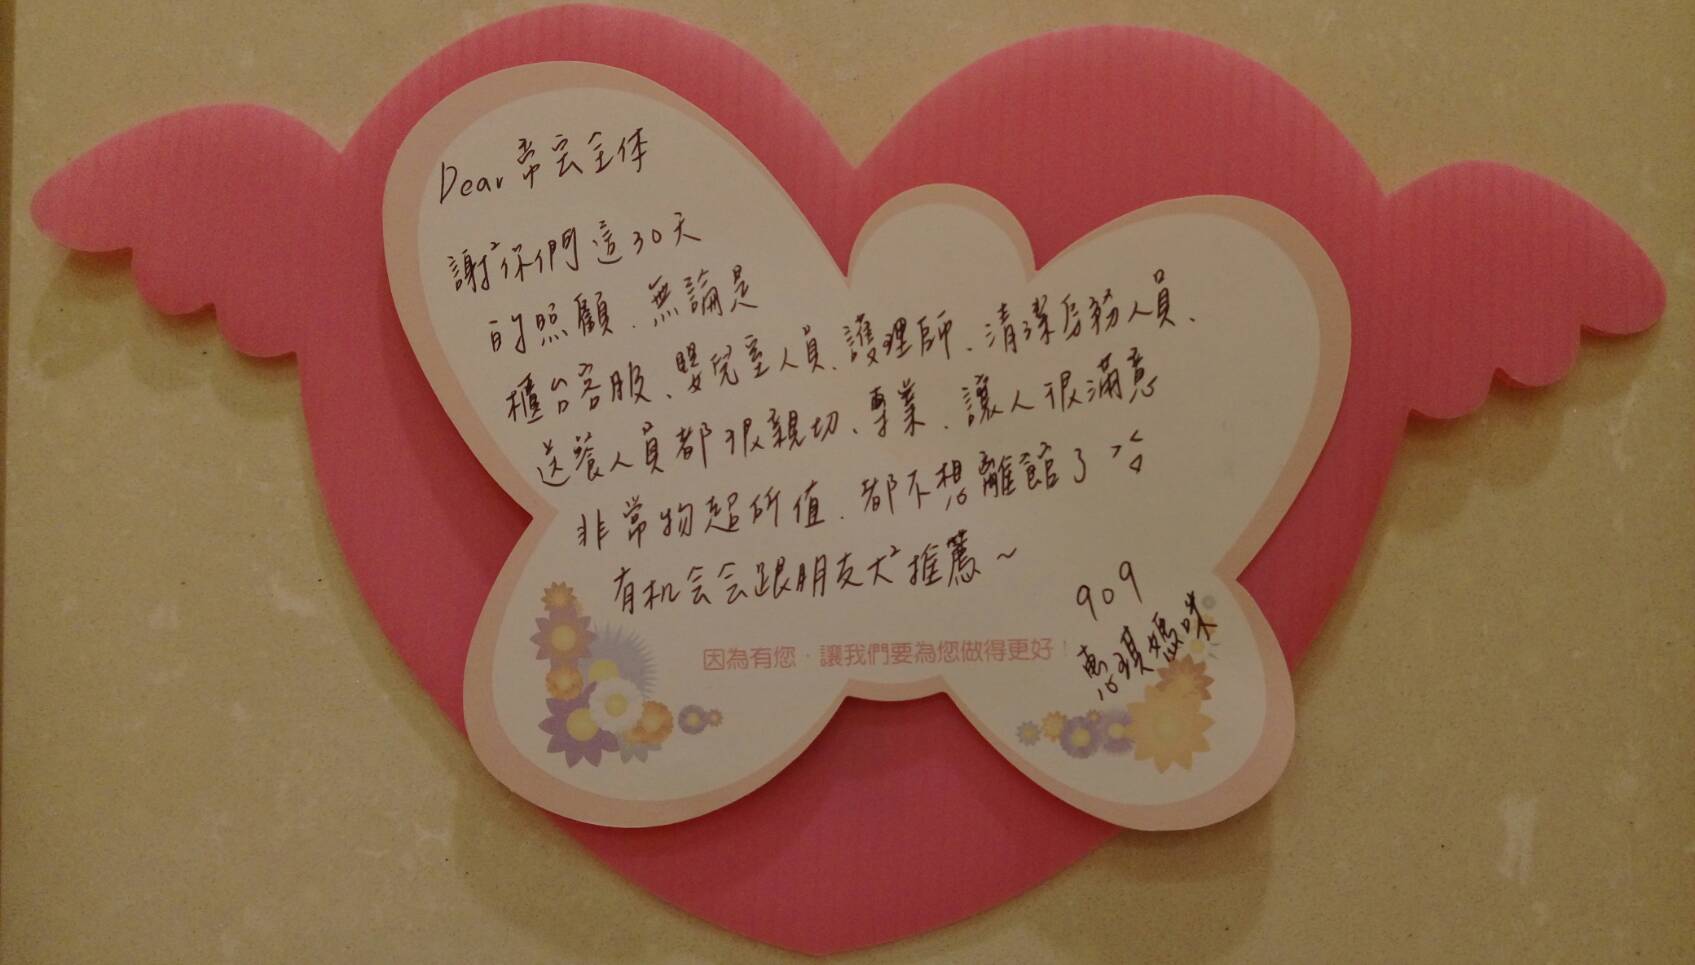 Dear 帝宝全体
謝²你們這30天
的照顧、無論是
櫃台客服、嬰兒室人員、護理師、清潔房務人員、
送餐人員都很親切、專業、讓人很滿意
非常物超所值、都不想離館了
有机会会跟朋友大²推薦~
909
惠琪媽咪
因為有您‧讓我們要為您做得更好!